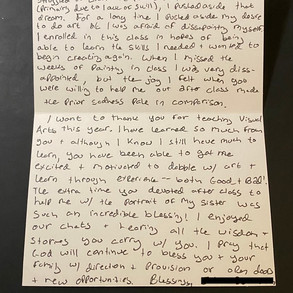 (primarily due to lack of skill), I pushed aside that
dream. For a long time I pushed aside my desire
to do art bc I was afraid of dissapointing myself.
I enrolled in this class in hopes of being
able to learn the skills I needed + wanted to
begin creating again. When I missed the
weeks of painting in class I was very diss-
appointed, but the joy I felt when you
were willing to help me out after class made
the prior sadness pale in comparison.
I want to thank you for teaching Visual
Arts this year. I have learned so much from
you + although I know I still have much to
learn, you have been able to get me
excited + motivated to dabble w/ art +
learn through experience -- both Good + Bad!
The extra time you devoted after class to
help me w/ the portrait of my sister was
such an incredible blessing! I enjoyed
our chats + hearing all the wisdom +
stories you carry w/ you. I pray that
God will continue to bless you + your
family w/ direction + provision or open doors
+ new opportunities. Blessings